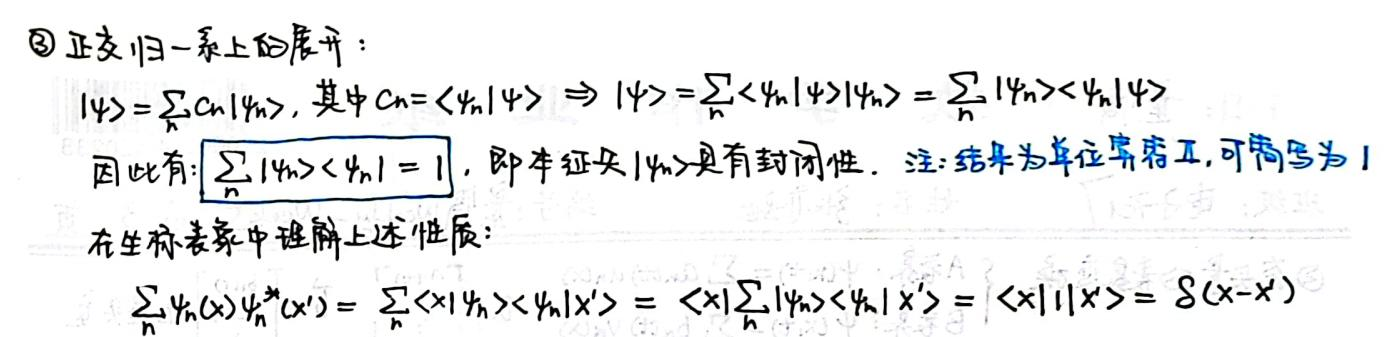 ③ 正交归一系上的展开：
|ψ> = ∑ₙ cₙ|ψₙ>, 其中 cₙ = <ψₙ|ψ> ⇒ |ψ> = ∑ₙ <ψₙ|ψ>|ψₙ> = ∑ₙ |ψₙ><ψₙ|ψ>
因此有: ∑ₙ |ψₙ><ψₙ| = 1, 即本征矢|ψₙ>具有封闭性. 注: 结果为单位算符 I, 可简写为 1
在坐标表象中理解上述性质:
∑ₙ ψₙ(x)ψₙ*(x') = ∑ₙ <x|ψₙ><ψₙ|x'> = <x|∑ₙ|ψₙ><ψₙ|x'> = <x|1|x'> = δ(x-x')